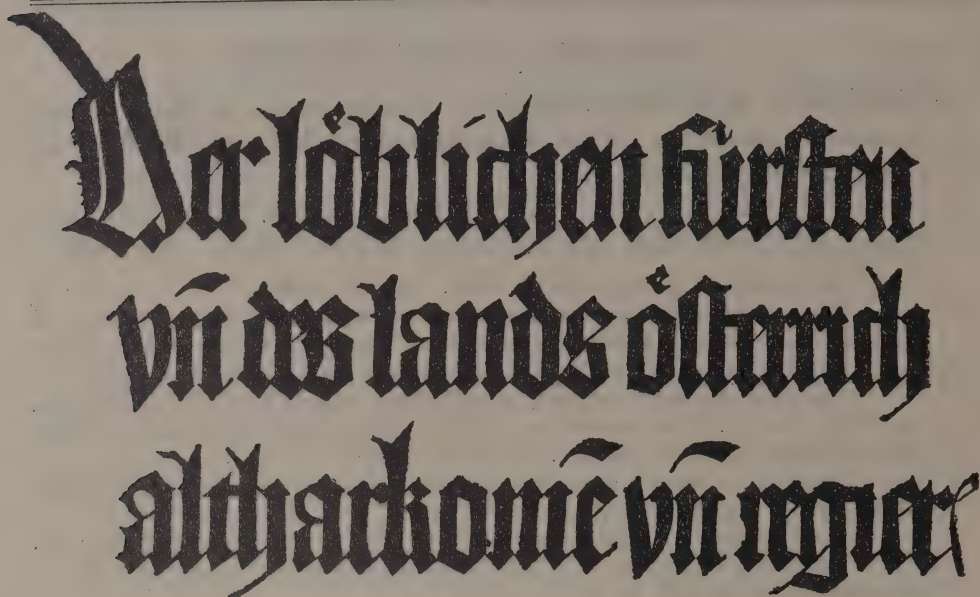 Der löblichen fürsten
vn̄ des lands österrich
altharkomē vn̄ regier